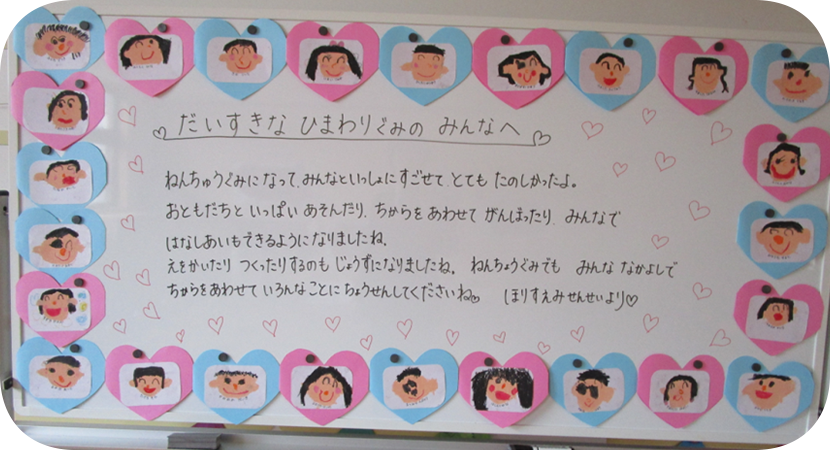 だいすきな ひまわりぐみの みんなへ
ねんちゅうぐみになって、みんなといっしょにすごせて、とても たのしかったよ。
おともだちと いっぱい あそんだり、ちからを あわせて がんばったり、みんなで
はなしあいもできるようになりましたね。
えをかいたり つくったりするのも じょうずになりましたね。 ねんちょうぐみでも みんな なかよしで
ちからをあわせて いろんなことに ちょうせんしてくださいね♡ ほりすえみせんせいより♡